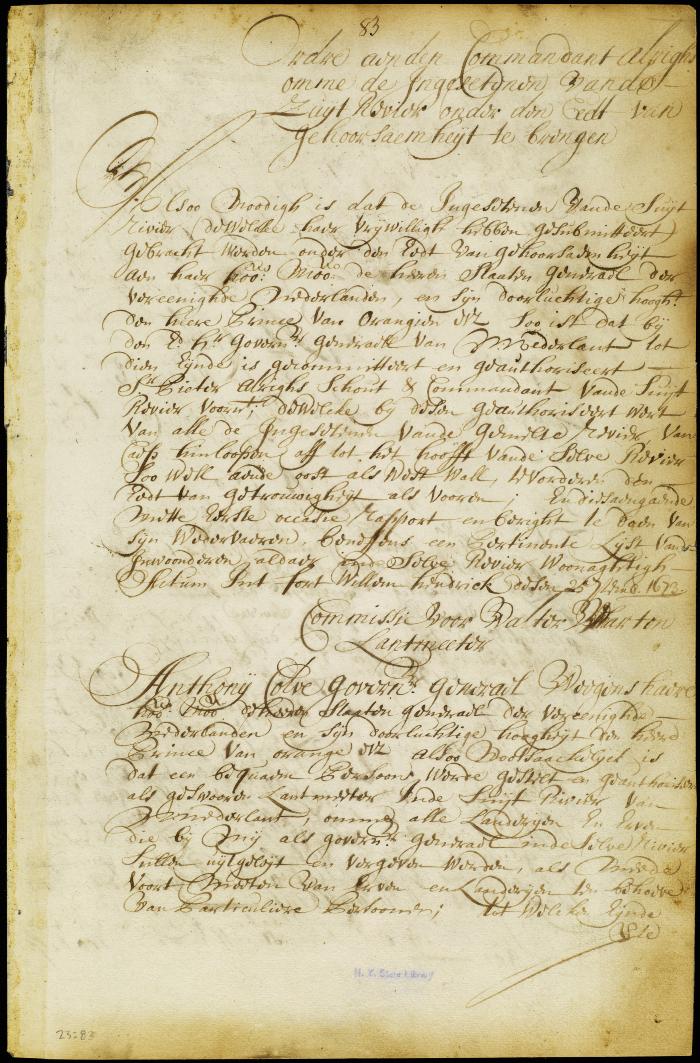 83
Ordre aenden Commandant Alrighs
omme de Ingesetenen Vande
Zuyt Revier onder den Eedt van
gehoorsaemheyt te brengen
Alsoo Noodigh is dat de Ingesetenen Vande Suyt
Rivier (dewelcke haer vrywilligh hebben gesubmitteert)
gebracht werden onder den Eedt van gehoorsaemheyt
aen haer hoo: Moo: de heeren Staaten Generael der
vereenighde Nederlanden, en syn doorluchtige hoogh:t
den heere Prince van Orangien etz Soo ist dat by
den E: Hr Govern:r Generael van N: Nederlant tot
dien Eynde is gecommitteert en geauthoriseert
Sr Pieter Alrighs Schout & Commandant Vande Suyt
Revier voorn:t; dewelcke by desen geauthoriseert wert
Van alle de Ingesetenen vande gemelte Revier, Van
Caep hinloopen aff tot het hooft vande Selve Revier
Soo well aende oost als West Wall, te vorderen den
Eedt van getrouwigheyt als vooren; En dissaengaende
mette Eerste occasie Rapport en bericht te doen van
syn Wedervaeren, beneffens een Pertinente Lyst vande
Inwoonderen aldaer inde Selve Revier Woonaghtigh
Actum Int fort Willem hendrick desen 25 7temb. 1673
Commissie Voor Walter Wharton
Lantmeeter
Anthony Colve govern:r generael Weegens haere
hoo: Moo: de heeren Staaten generael der vereenighde
Nederlanden en syn doorluchtige hoogheyt den heere
Prince Van orange etz Alsoo Nootsaackelyck is
dat een bequaem Persoon werde gestelt en geauthoriseert
als geswooren Lantmeeter Inde Suyt Rivier van
N: Nederlant, omme alle Landeryen En Erven
die by my als govern:r generael inde selve Rivier
Sullen uytgeleyt en vergeven werden, als Meede
voort Meeten van Erven en Landeryen ten behoeve
van Particuliere Persoonen; tot welcken Eynde
N. Y. State Library
23:83